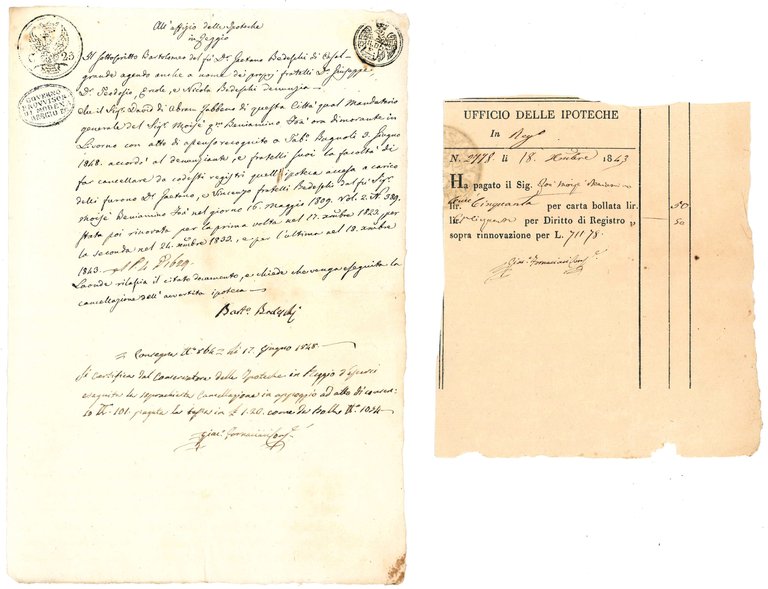 All'uffizio delle Ipoteche
in Reggio
25
GOVERNO
PROVVISORIO
DI MODENA
REGGIO EC
Il sottoscritto Bartolomeo del fu Dr. Gaetano Bedeschi di Casal-
grande agente anche a nome dei propri fratelli Dr. Giuseppe,
Dr. Teodosio, Ercole, e Nicola Bedeschi denunzia
che il Sigr. David di Abram Jabbene di questa Città qual Mandatario
generale del Sigr. Moisè qm. Beniamino Foà ora dimorante in
Livorno con atto di assenso recognito a Tabn. Bagnoli 3. Giugno
1848. accordò al denunziante, e fratelli suoi la facoltà di
far cancellare da codesti registri quell'ipoteca accesa a carico
delli furono Dr. Gaetano, e Vincenzo fratelli Bedeschi dal fu Sigr.
Moisè Beniamino Foà nel giorno 16. Maggio 1809. Vol. 2. N. 389.
stata poi rinovata per la prima volta nel 17. 9mbre 1823, per
la seconda nel 24. 9mbre 1833. e per l'ultima nel 18. 9mbre
1843.
Laonde rilascia il citato documento, e chiede che venga eseguita la
cancellazione dell'avvertita ipoteca
Barto. Bedeschi
Consegna No. 864 li 17. Giugno 1848
Si certifica dal Conservatore delle Ipoteche in Reggio d'essersi
eseguita la sopracchiesta cancellazione in appoggio ad atto di consen-
so No. 101. pagata la tassa in £ 1.20. come da Bolla No. 1024
Giac. Fornaciari Cons.
UFFICIO DELLE IPOTECHE
In Regg
N. 2778. li 18. 9mbre 1843
Ha pagato il Sig. Foà Moisè Beniam
lir. Cinquanta per carta bollata lir. 50
lir. Cinquanta per Diritto di Registro » 50
sopra rinnovazione per L. 71178.
Giac. Fornaciari Cons.